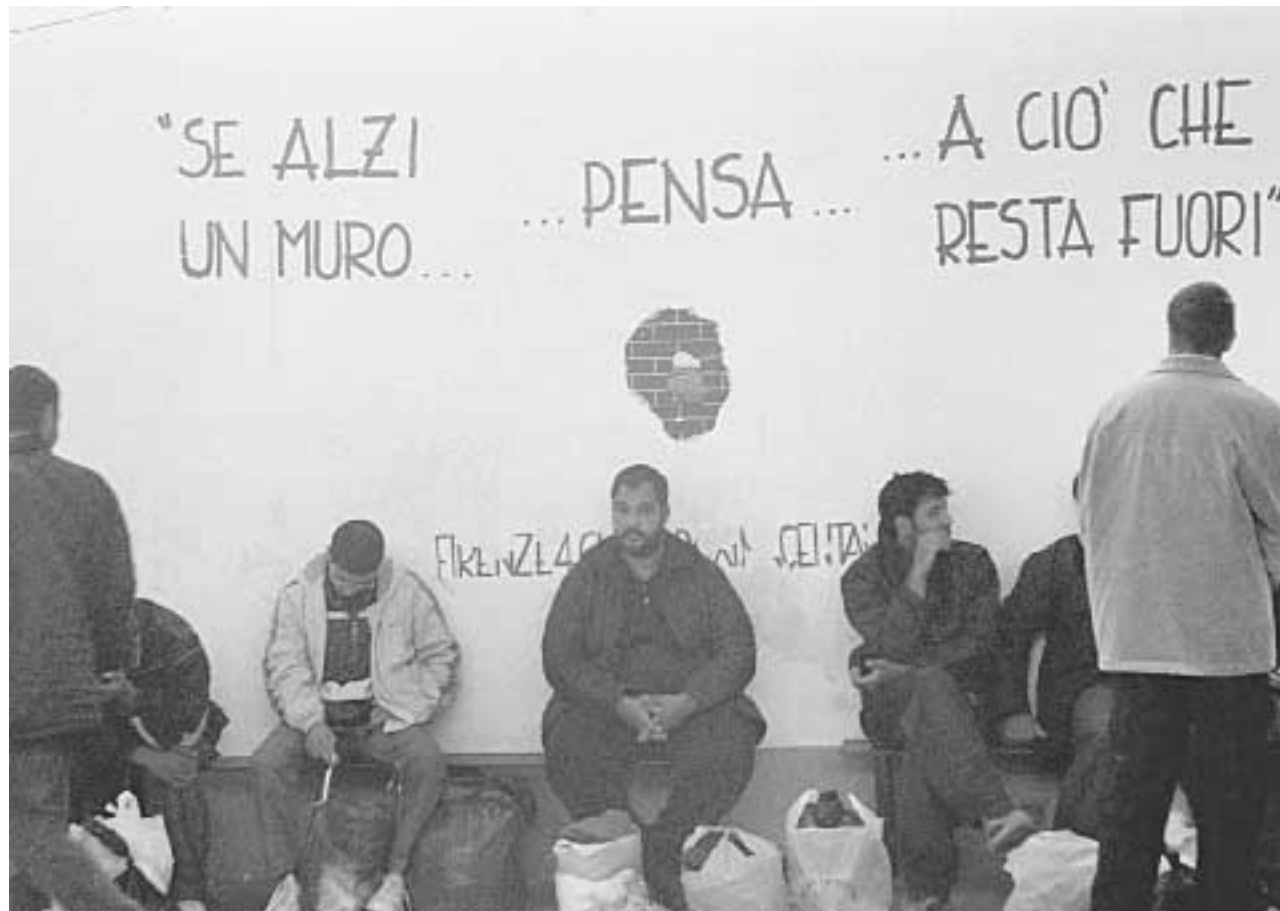 "SE ALZI
UN MURO...
...PENSA...
...A CIO' CHE
RESTA FUORI"